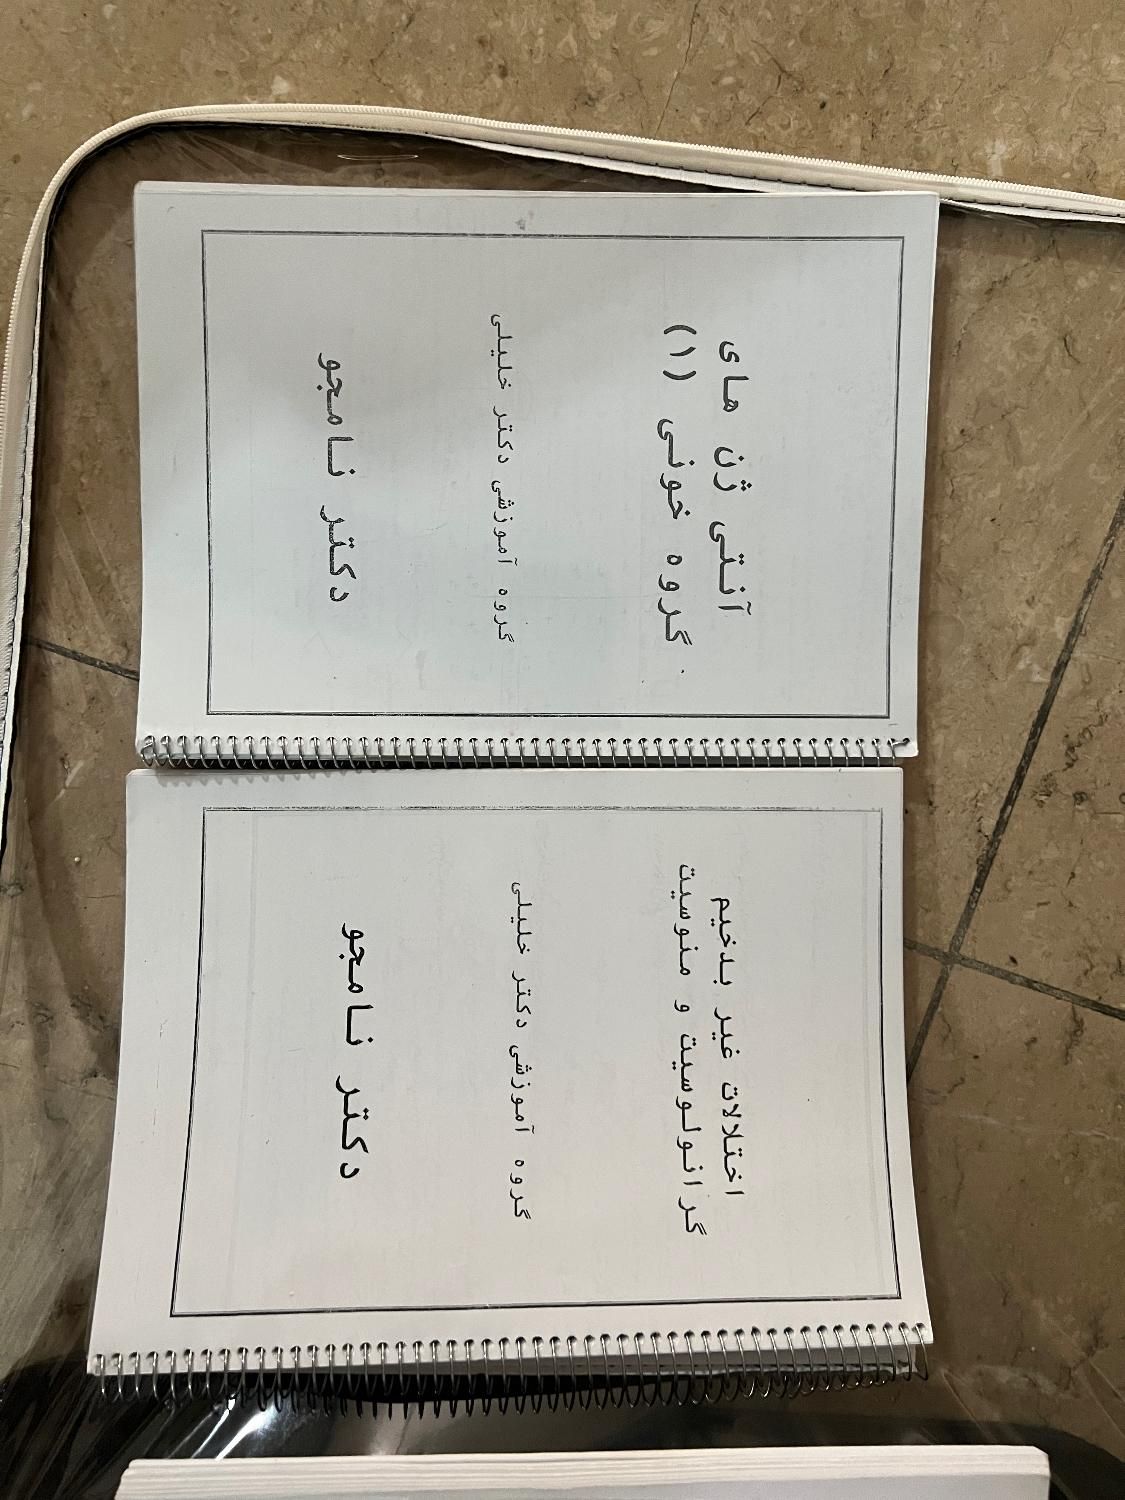 آنتی ژن های
گروه خونی (۱)
گروه آموزشی دکتر خلیلی
دکتر نامجو
اختلالات غیر بدخیم
گرانولوسیت و منوسیت
گروه آموزشی دکتر خلیلی
دکتر نامجو